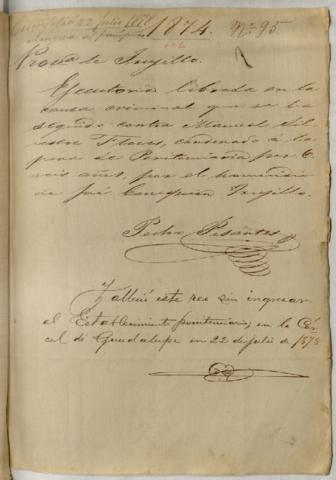 Cumplió 22 Julio 1878
1874. No. 95.
Prova de Trujillo.
Ejecutoria librada en la
causa criminal que se ha
seguido contra Manuel Sil
vestre Flores, condenado á la
pena de Penitenciaría por
seis años, por el homicidio
de José Trujillo.
Pedro Pisantes
Falleció este reo sin ingresar
al Establecimiento penitenciario; en la Cár
cel de Guadalupe en 22 de julio de 1878